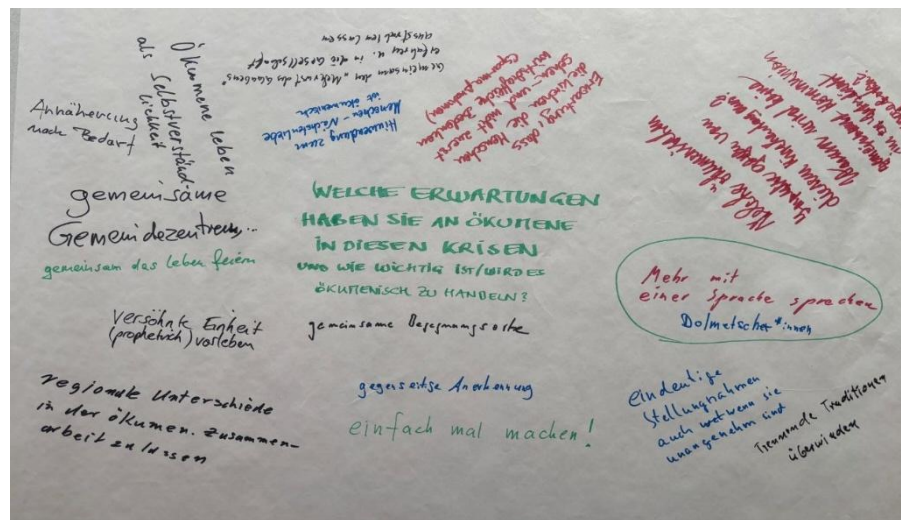 Ökumene leben
als Selbstverständ-
lichkeit
Annäherung
nach Bedarf
Gemeinsam den „Mehrwert des Glaubens"
erfahren u. in die Gesellschaft
ausstrahlen lassen
Hinwendung zum
Menschen - Nächstenliebe
ist ökumenisch
Erwartung: dass
die Kirchen die Menschen
sehen - und nicht zuerst
wirtschaftliche
Welche ökumenischen
von
diesem
wird eine
gemeinsame
gemeinsame
Gemeindezentren,..
gemeinsam das Leben feiern
WELCHE ERWARTUNGEN
HABEN SIE AN ÖKUMENE
IN DIESEN KRISEN
UND WIE WICHTIG IST/WIRD ES
ÖKUMENISCH ZU HANDELN?
Mehr mit
einer Sprache sprechen
Dolmetscher*innen
versöhnte Einheit
(prophetisch) vorleben
gemeinsame Begegnungsorte
regionale Unterschiede
in der ökumen. Zusammen-
arbeit zulassen
gegenseitige Anerkennung
einfach mal machen!
eindeutige
Stellungnahmen
auch wenn sie
unangenehm sind
Trennende Traditionen
überwinden